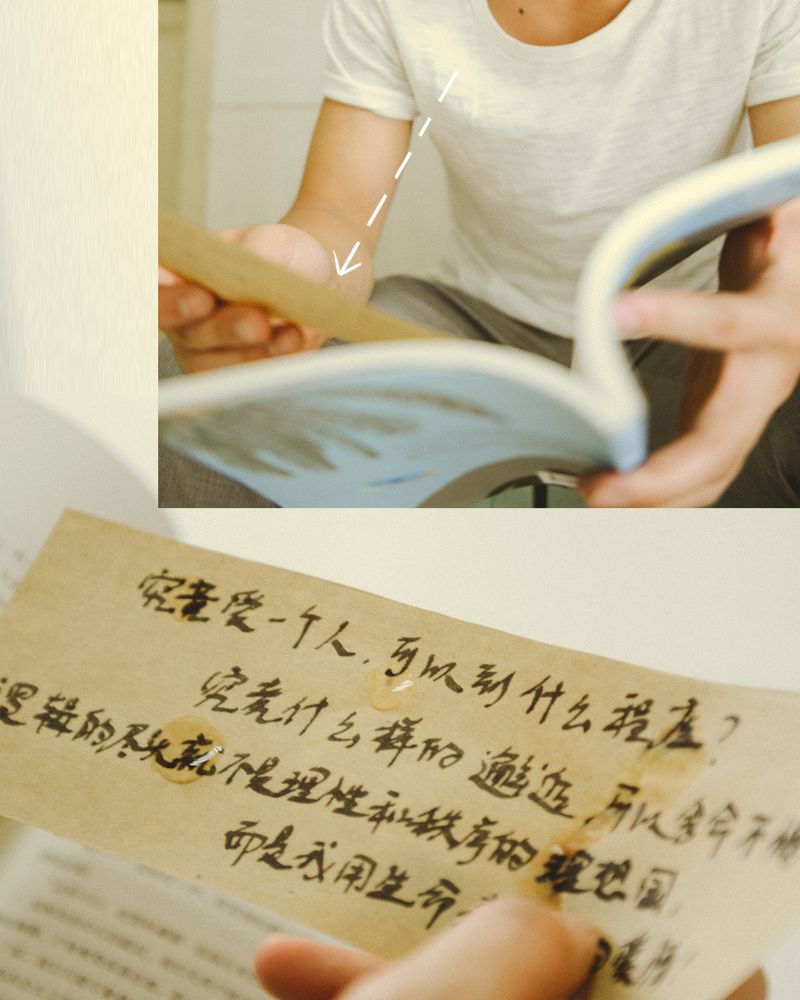 究竟爱一个人,可以到什么程度?
究竟什么样的邂逅 可以舍命不
逻辑的尽头就不是理性和秩序的理想国,
而是我用生命